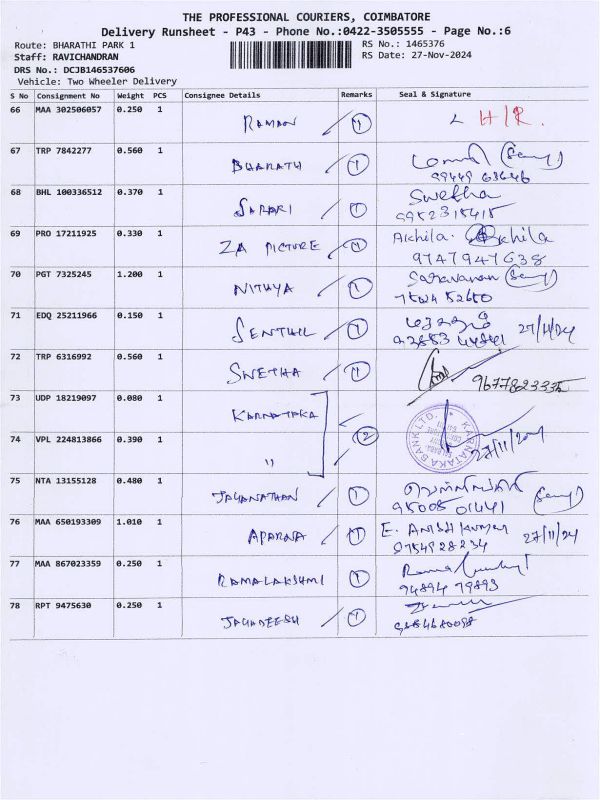 THE PROFESSIONAL COURIERS, COIMBATORE
Delivery Runsheet - P43 - Phone No.:0422-3505555 - Page No.:6
Route: BHARATHI PARK 1 RS No.: 1465376
Staff: RAVICHANDRAN RS Date: 27-Nov-2024
DRS No.: DCJB146537606
Vehicle: Two Wheeler Delivery
S No Consignment No Weight PCS Consignee Details Remarks Seal & Signature
66 MAA 302506057 0.250 1 RAMAN 1 H/R.
67 TRP 7842277 0.560 1 BHARATH 1
68 BHL 100336512 0.370 1 1 Swetha
9952315415
69 PRO 17211925 0.330 1 ZA PICTURE 1 Akhila. Akhila
9747947638
70 PGT 7325245 1.200 1 NITHYA 1 Saravanan
71 EDQ 25211966 0.150 1 SENTHIL 1 27/11/24
72 TRP 6316992 0.560 1 SWETHA 1
9677823335
73 UDP 18219097 0.080 1 KARNATAKA
74 VPL 224813866 0.390 1 " 2 KARNATAKA BANK LTD. 27/11/2024
75 NTA 13155128 0.480 1 JAYANATHAN 1
95005 01441
76 MAA 650193309 1.010 1 APARNA 1 E. ANISH KUMAR 27/11/24
9754928234
77 MAA 867023359 0.250 1 RAMALAKSHMI 1
94894 79893
78 RPT 9475630 0.250 1 JAGADEESH 1